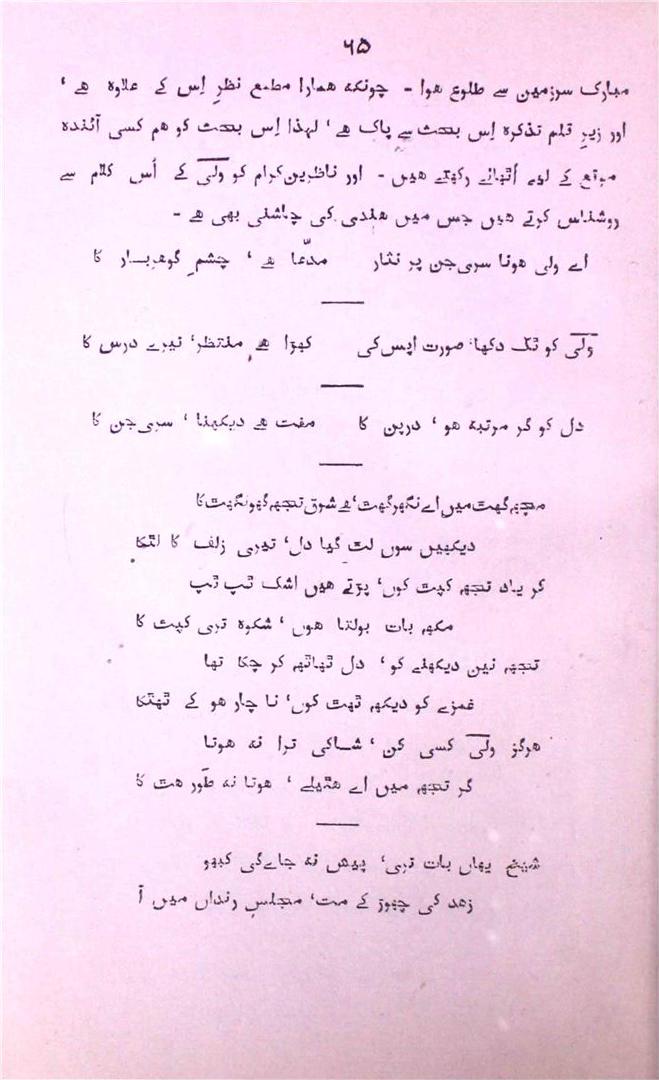 ۶۵
مبارک سرزمین سے طلوع هوا - چونکه همارا مطمع نظرِ اِس کے علاوه هے ‘
اور زیرِ قلم تذکره اِس بحث سے پاک هے ‘ لهذا اِس بحث کو هم کسی آئنده
موقع کے لیے اُٹهائے رکهتے هیں - اور ناظرین کرام کو ولی کے اُس کلام سے
روشناس کرتے هیں جس میں هندی کی چاشنی بهی هے -
اے ولی هونا سری جن پر نثار مدّعا هے ‘ چشمِ گوهربار کا
ولی کو ٹک دکها‘ صورت اپس کی کهڑا هے منتظر‘ تیرے درس کا
دل کو گر مرتبه هو ‘ درپن کا مفت هے دیکهنا ‘ سری جن کا
مجهه گهت میں اے نگهرگهت‘ هے شوق تجهه گهونگهت کا
دیکهیں سوں لت گیا دل‘ تیری زلف کا لٹکا
کر یاد تجهه کپت کوں‘ پڑتے هیں اشک ٹپ ٹپ
مکهه بات بولتا هوں ‘ شکوه تری کپت کا
تجهه نین دیکهنے کو‘ دل ٹهاٹهه کر چکا تها
غمزے کو دیکهه ٹهت کوں‘ نا چار هو کے ٹهٹکا
هرگز ولی کسی کن ‘ شاکی ترا نه هوتا
گر تجهه میں اے هٹیلے ‘ هوتا نه طور هت کا
شیخ یهاں بات تری‘ پیش نه جاے گی کبهو
زهد کی چهوڑ کے مت‘ مجلسِ رنداں میں آ